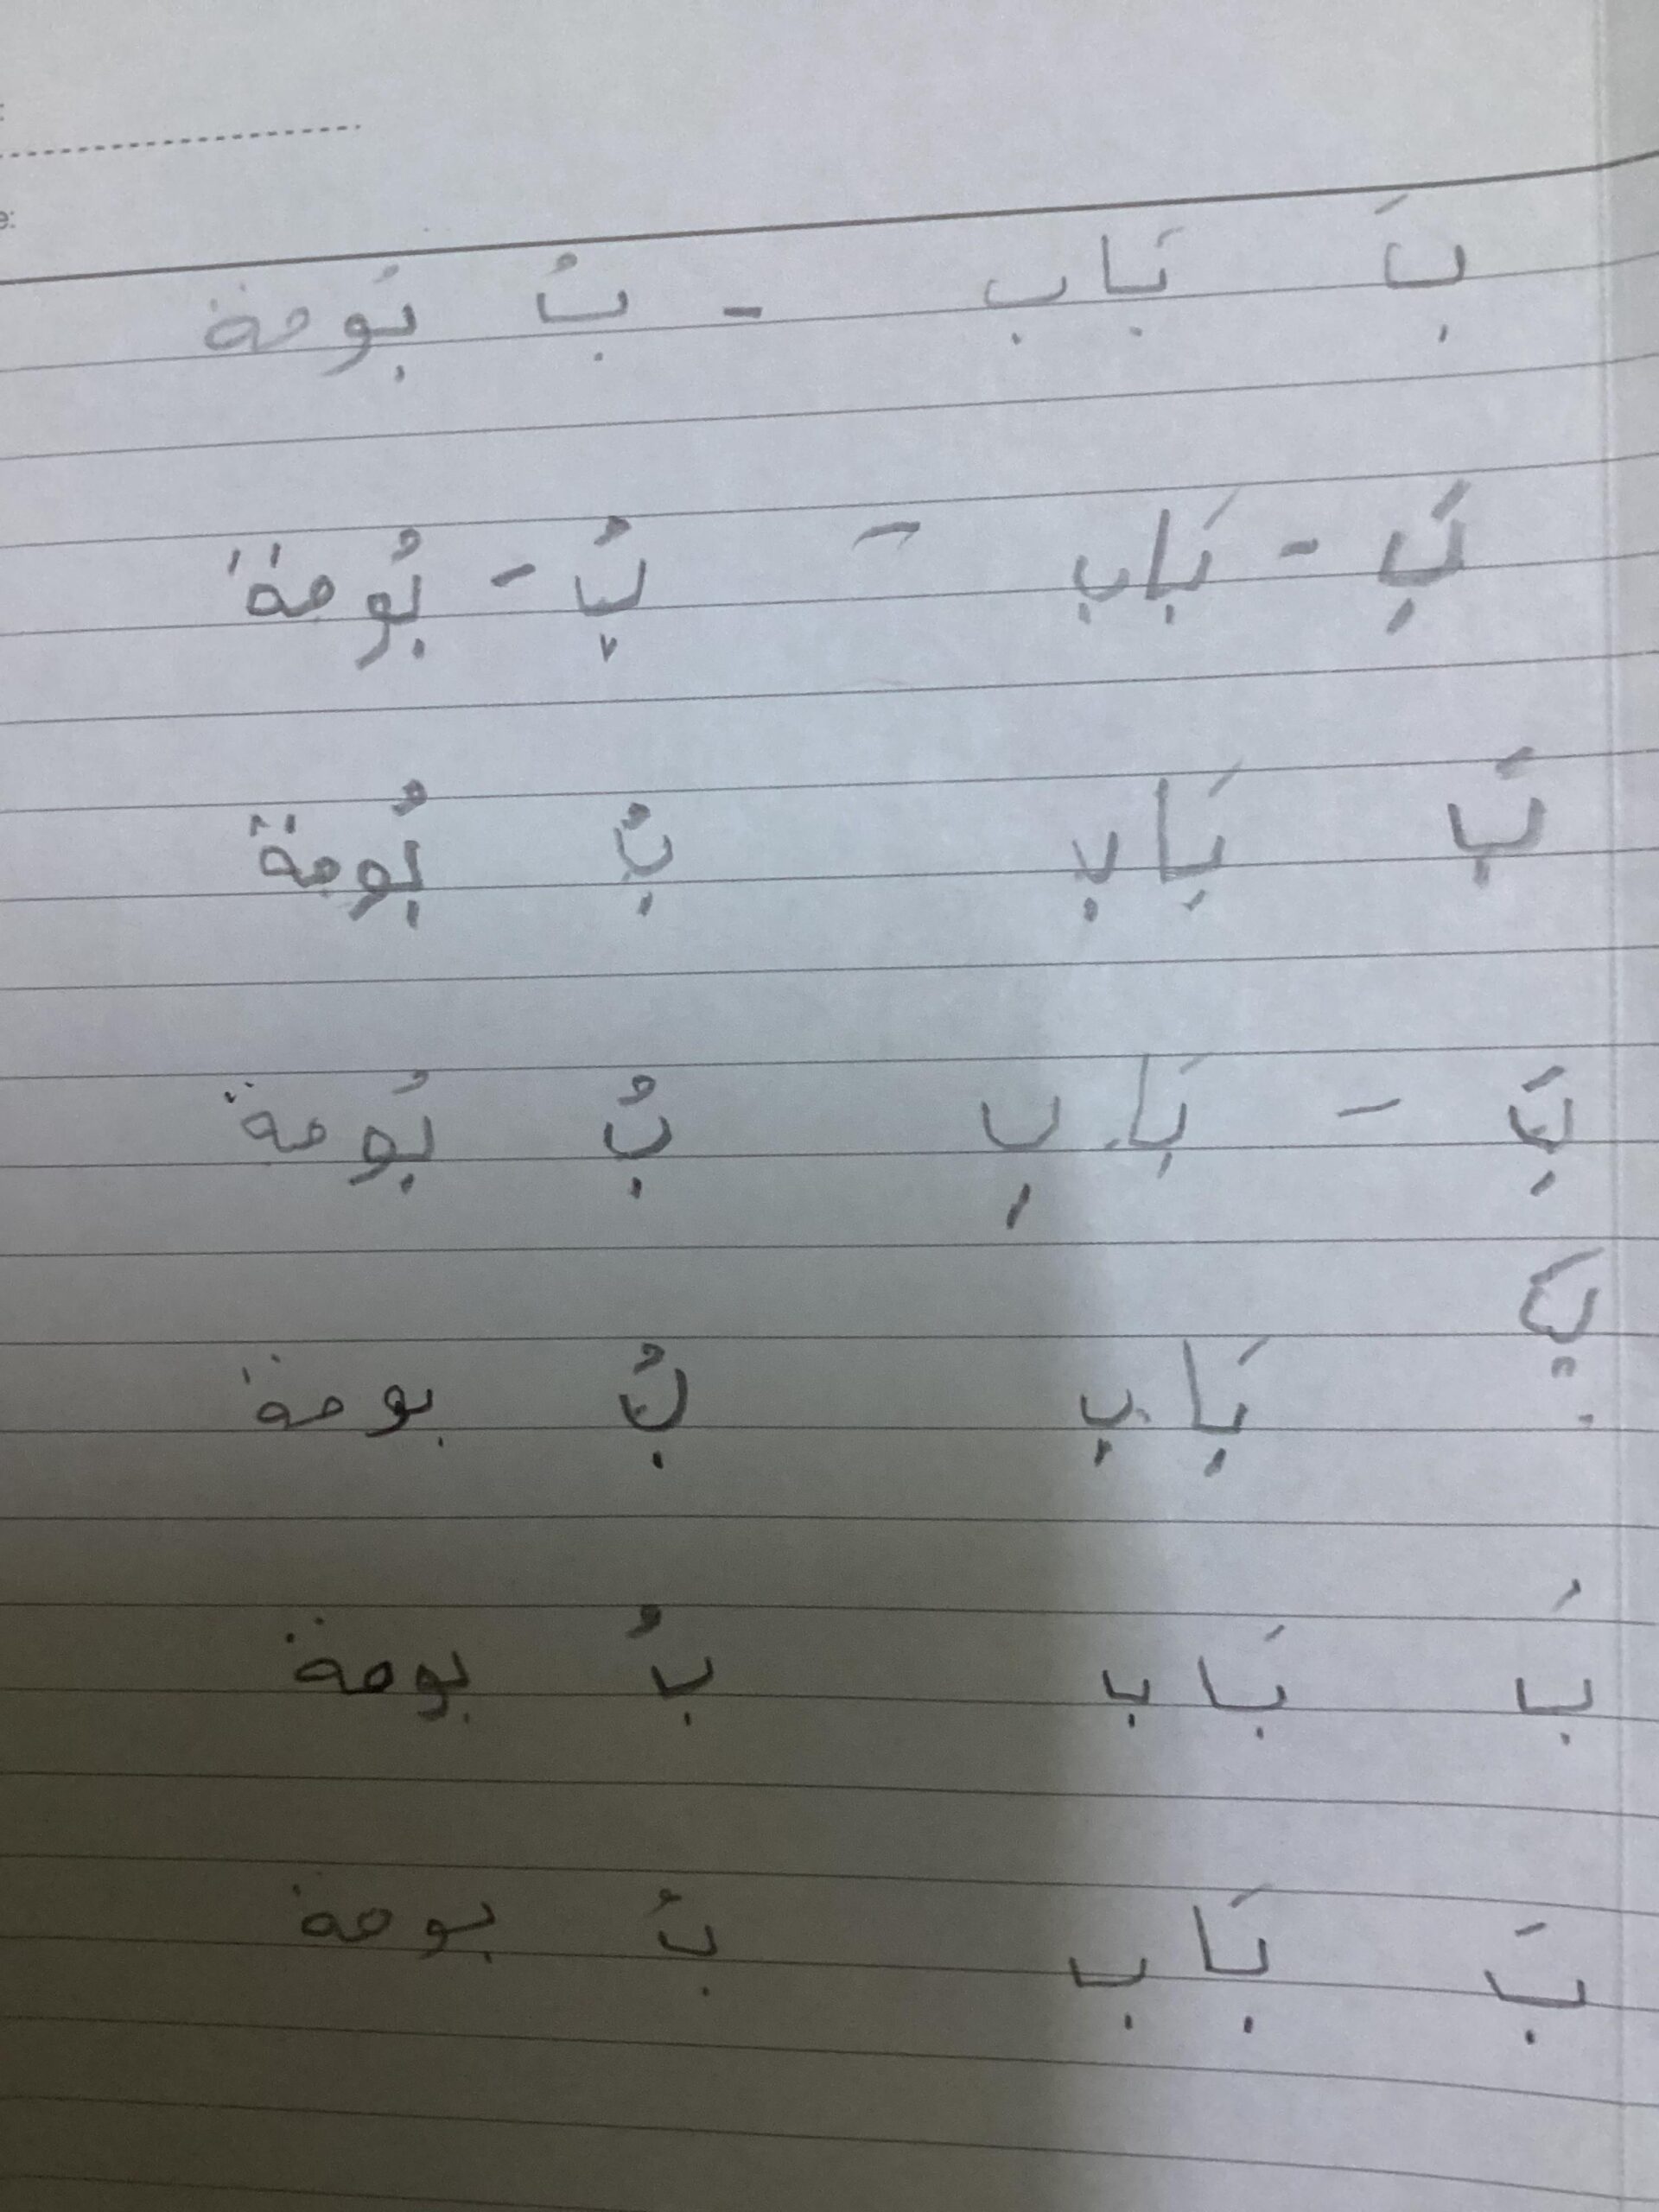 بَ بَاب - بُ بُومة
بَ - بَاب - بُ - بُومة
بَ بَاب بُ بُومة
بَ - بَاب بُ بُومة
بَ بَاب بُ بومة
بَ بَاب بُ بومة
بَ بَاب بُ بومة